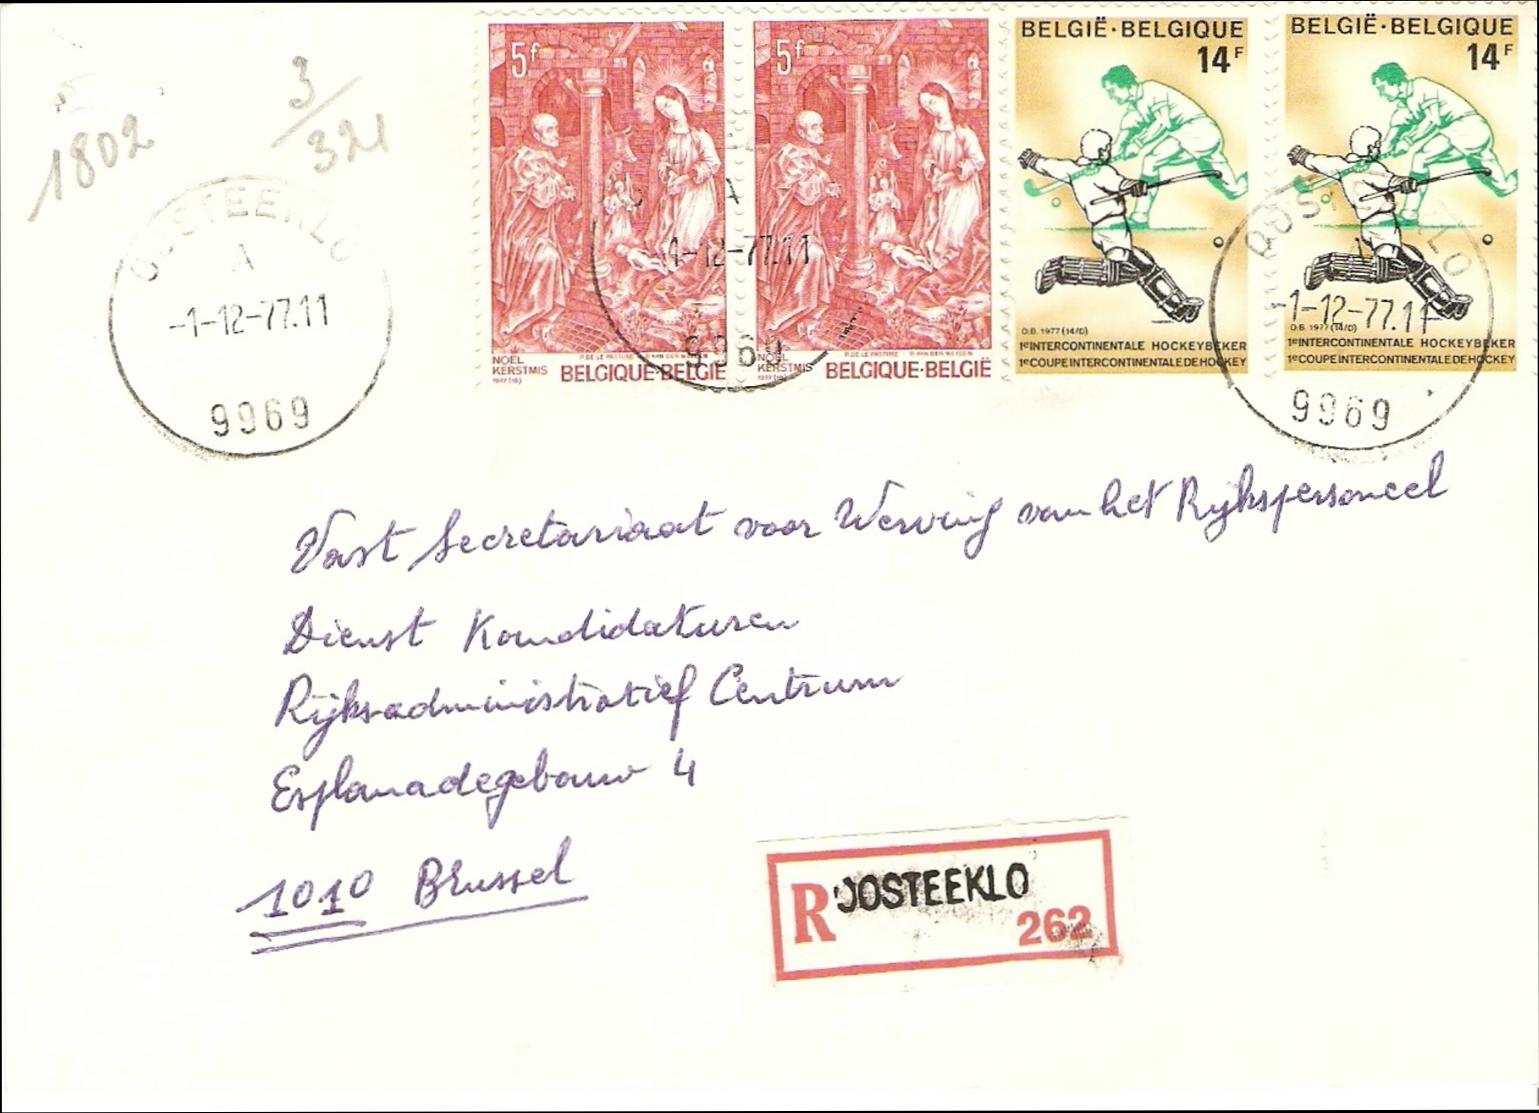 1802
3/321
OOSTEEKLO
A
-1-12-77.11
9969
5f
NOËL
KERSTMIS
1977 (18)
P. DE LE PASTURE - R. VAN DER WEYDEN
BELGIQUE·BELGIË
5f
NOËL
KERSTMIS
1977 (18)
P. DE LE PASTURE - R. VAN DER WEYDEN
BELGIQUE·BELGIË
A
-1-12-77.11
9969
BELGIË·BELGIQUE
14F
O.B. 1977 (14/D)
1e INTERCONTINENTALE HOCKEYBEKER
1e COUPE INTERCONTINENTALE DE HOCKEY
BELGIË·BELGIQUE
14F
O.B. 1977 (14/D)
1e INTERCONTINENTALE HOCKEYBEKER
1e COUPE INTERCONTINENTALE DE HOCKEY
OOSTEEKLO
-1-12-77.11
9969
Vast Secretariaat voor Werving van het Rijkspersoneel
Dienst Kandidaturen
Rijksadministratief Centrum
Esplanadegebouw 4
1010 Brussel
R OOSTEEKLO
262